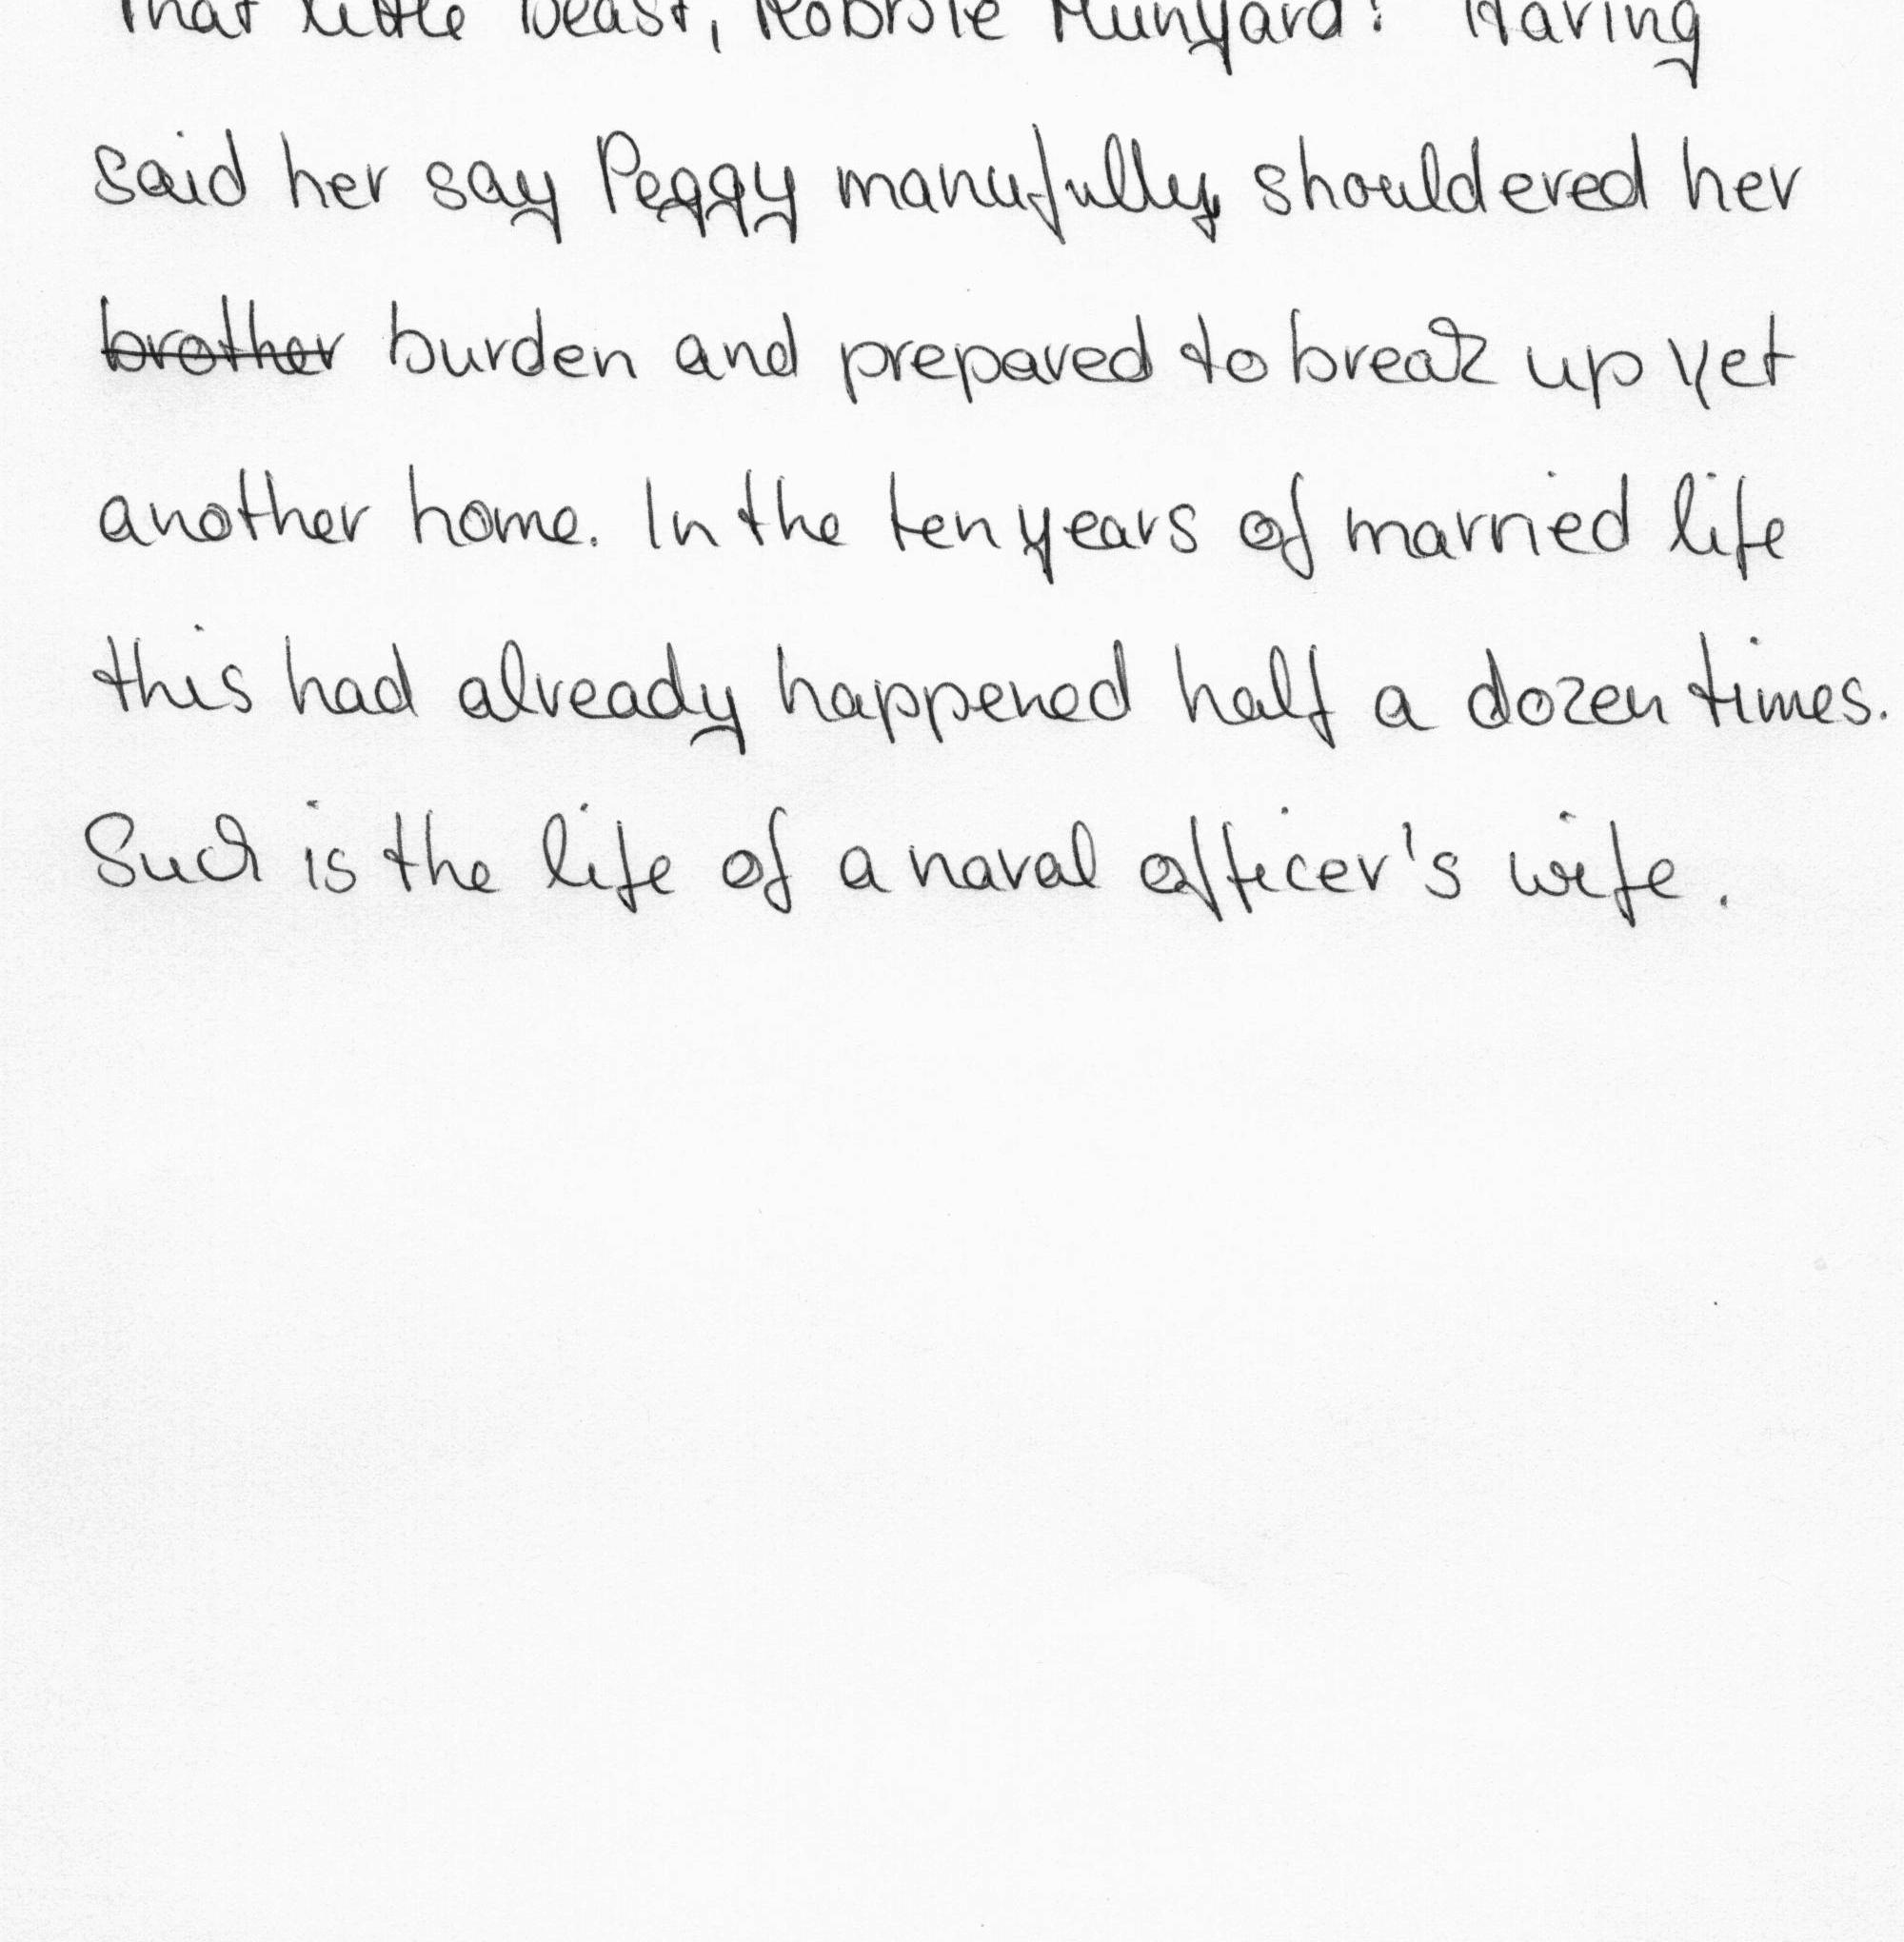 That little beast, Robbie Munyard! Having
said her say Peggy manufully, shouldered her
brother burden and prepared to break up yet
another home. In the ten years of married life
this had already happened half a dozen times.
Such is the life of a naval officer's wife.